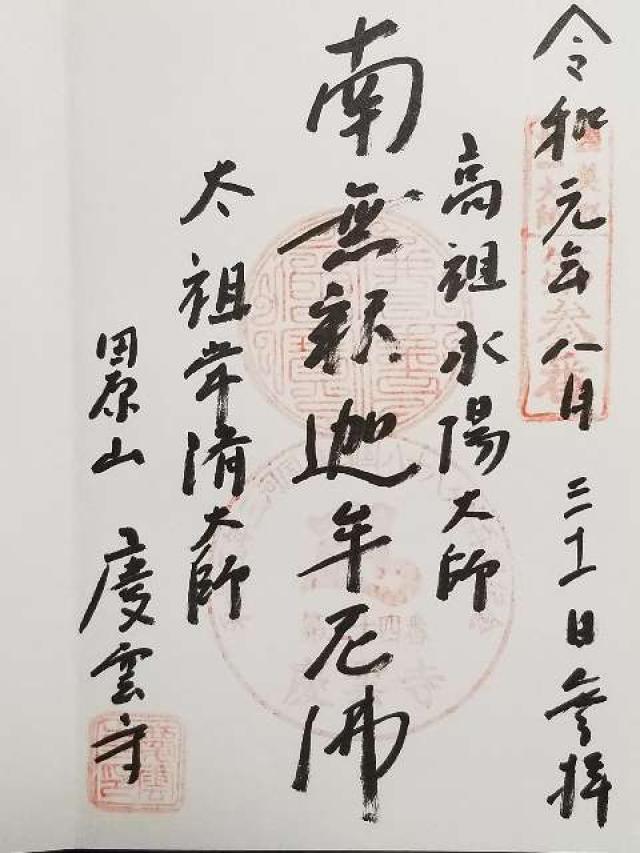 令和元年八月二十一日参拝
高祖承陽大師
南無釈迦牟尼佛
太祖常済大師
田原山 慶雲寺